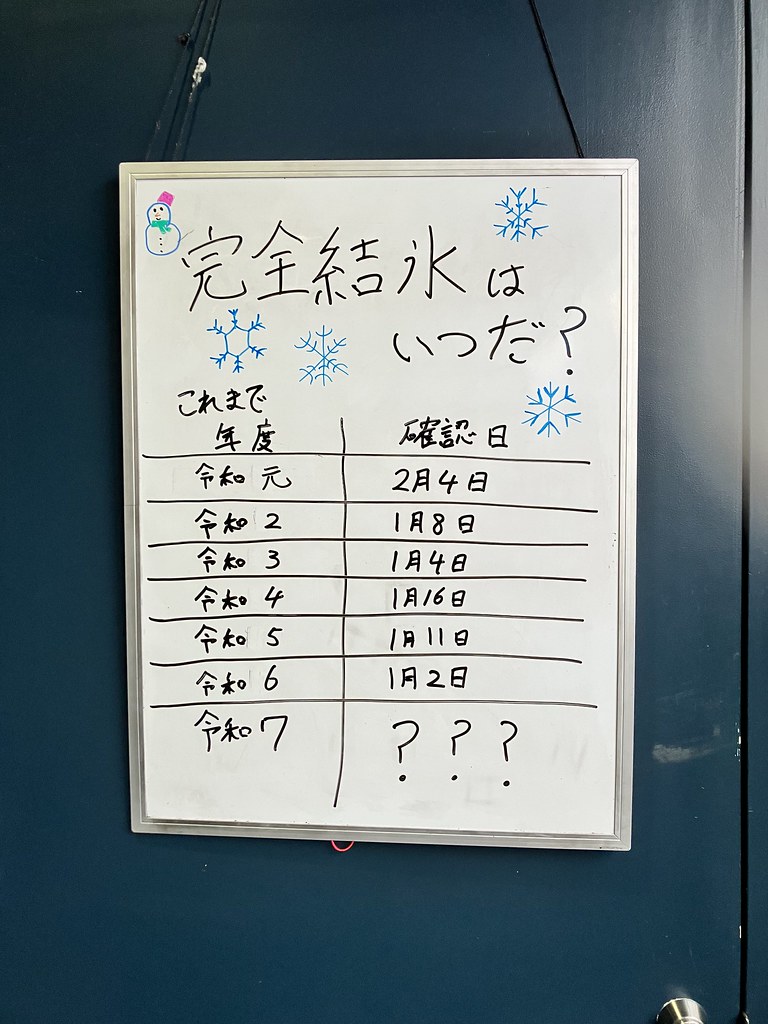 完全結氷は
いつだ?
これまで
年度 確認日
令和 元 2月4日
令和 2 1月8日
令和 3 1月4日
令和 4 1月16日
令和 5 1月11日
令和 6 1月2日
令和7 ???